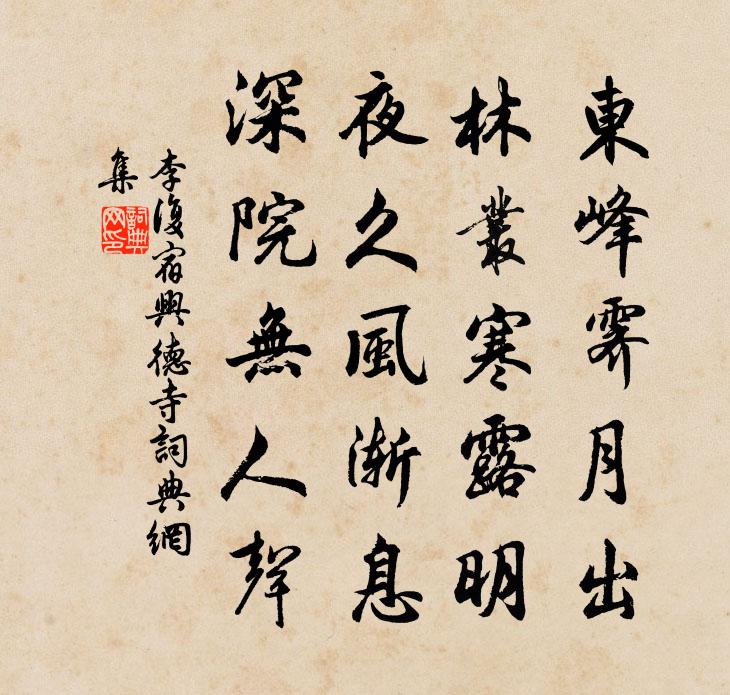 東峰霽月出
林叢寒露明
夜久風漸息
深院無人聲
李復宿興德寺詞典網
集
詞典網印